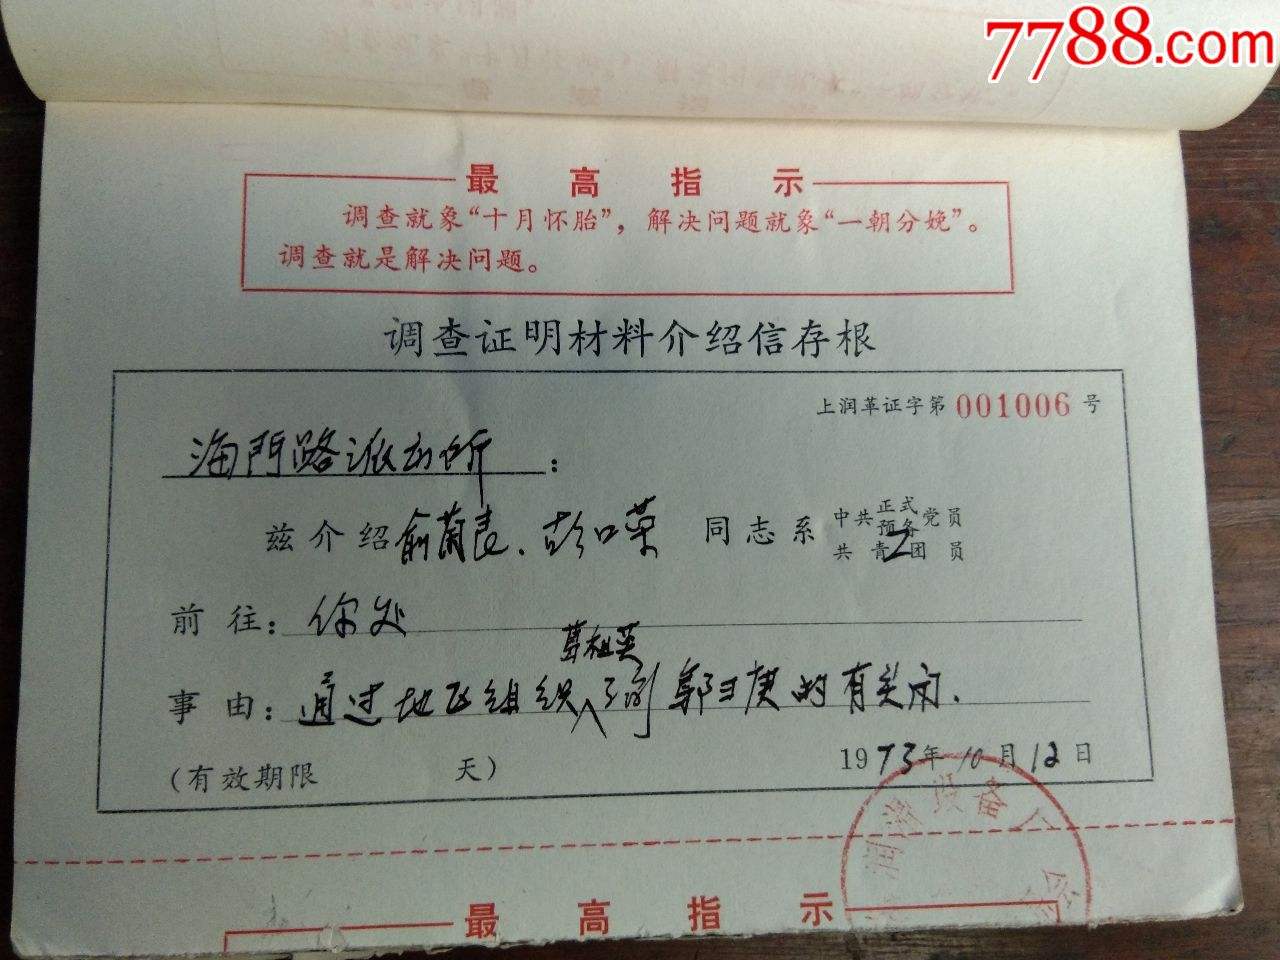 7788.com
最高指示
调查就象“十月怀胎”，解决问题就象“一朝分娩”。
调查就是解决问题。
调查证明材料介绍信存根
上润革证字第 001006 号
海门路派出所：
兹介绍俞菊良、彭口荣 同志系 中共正式预备党员
共青团员
前往：你处
葛祖英
事由：通过地区组织了解郭卫庚的有关
(有效期限 天)
1973年10月12日
润滑设备厂
最高指示